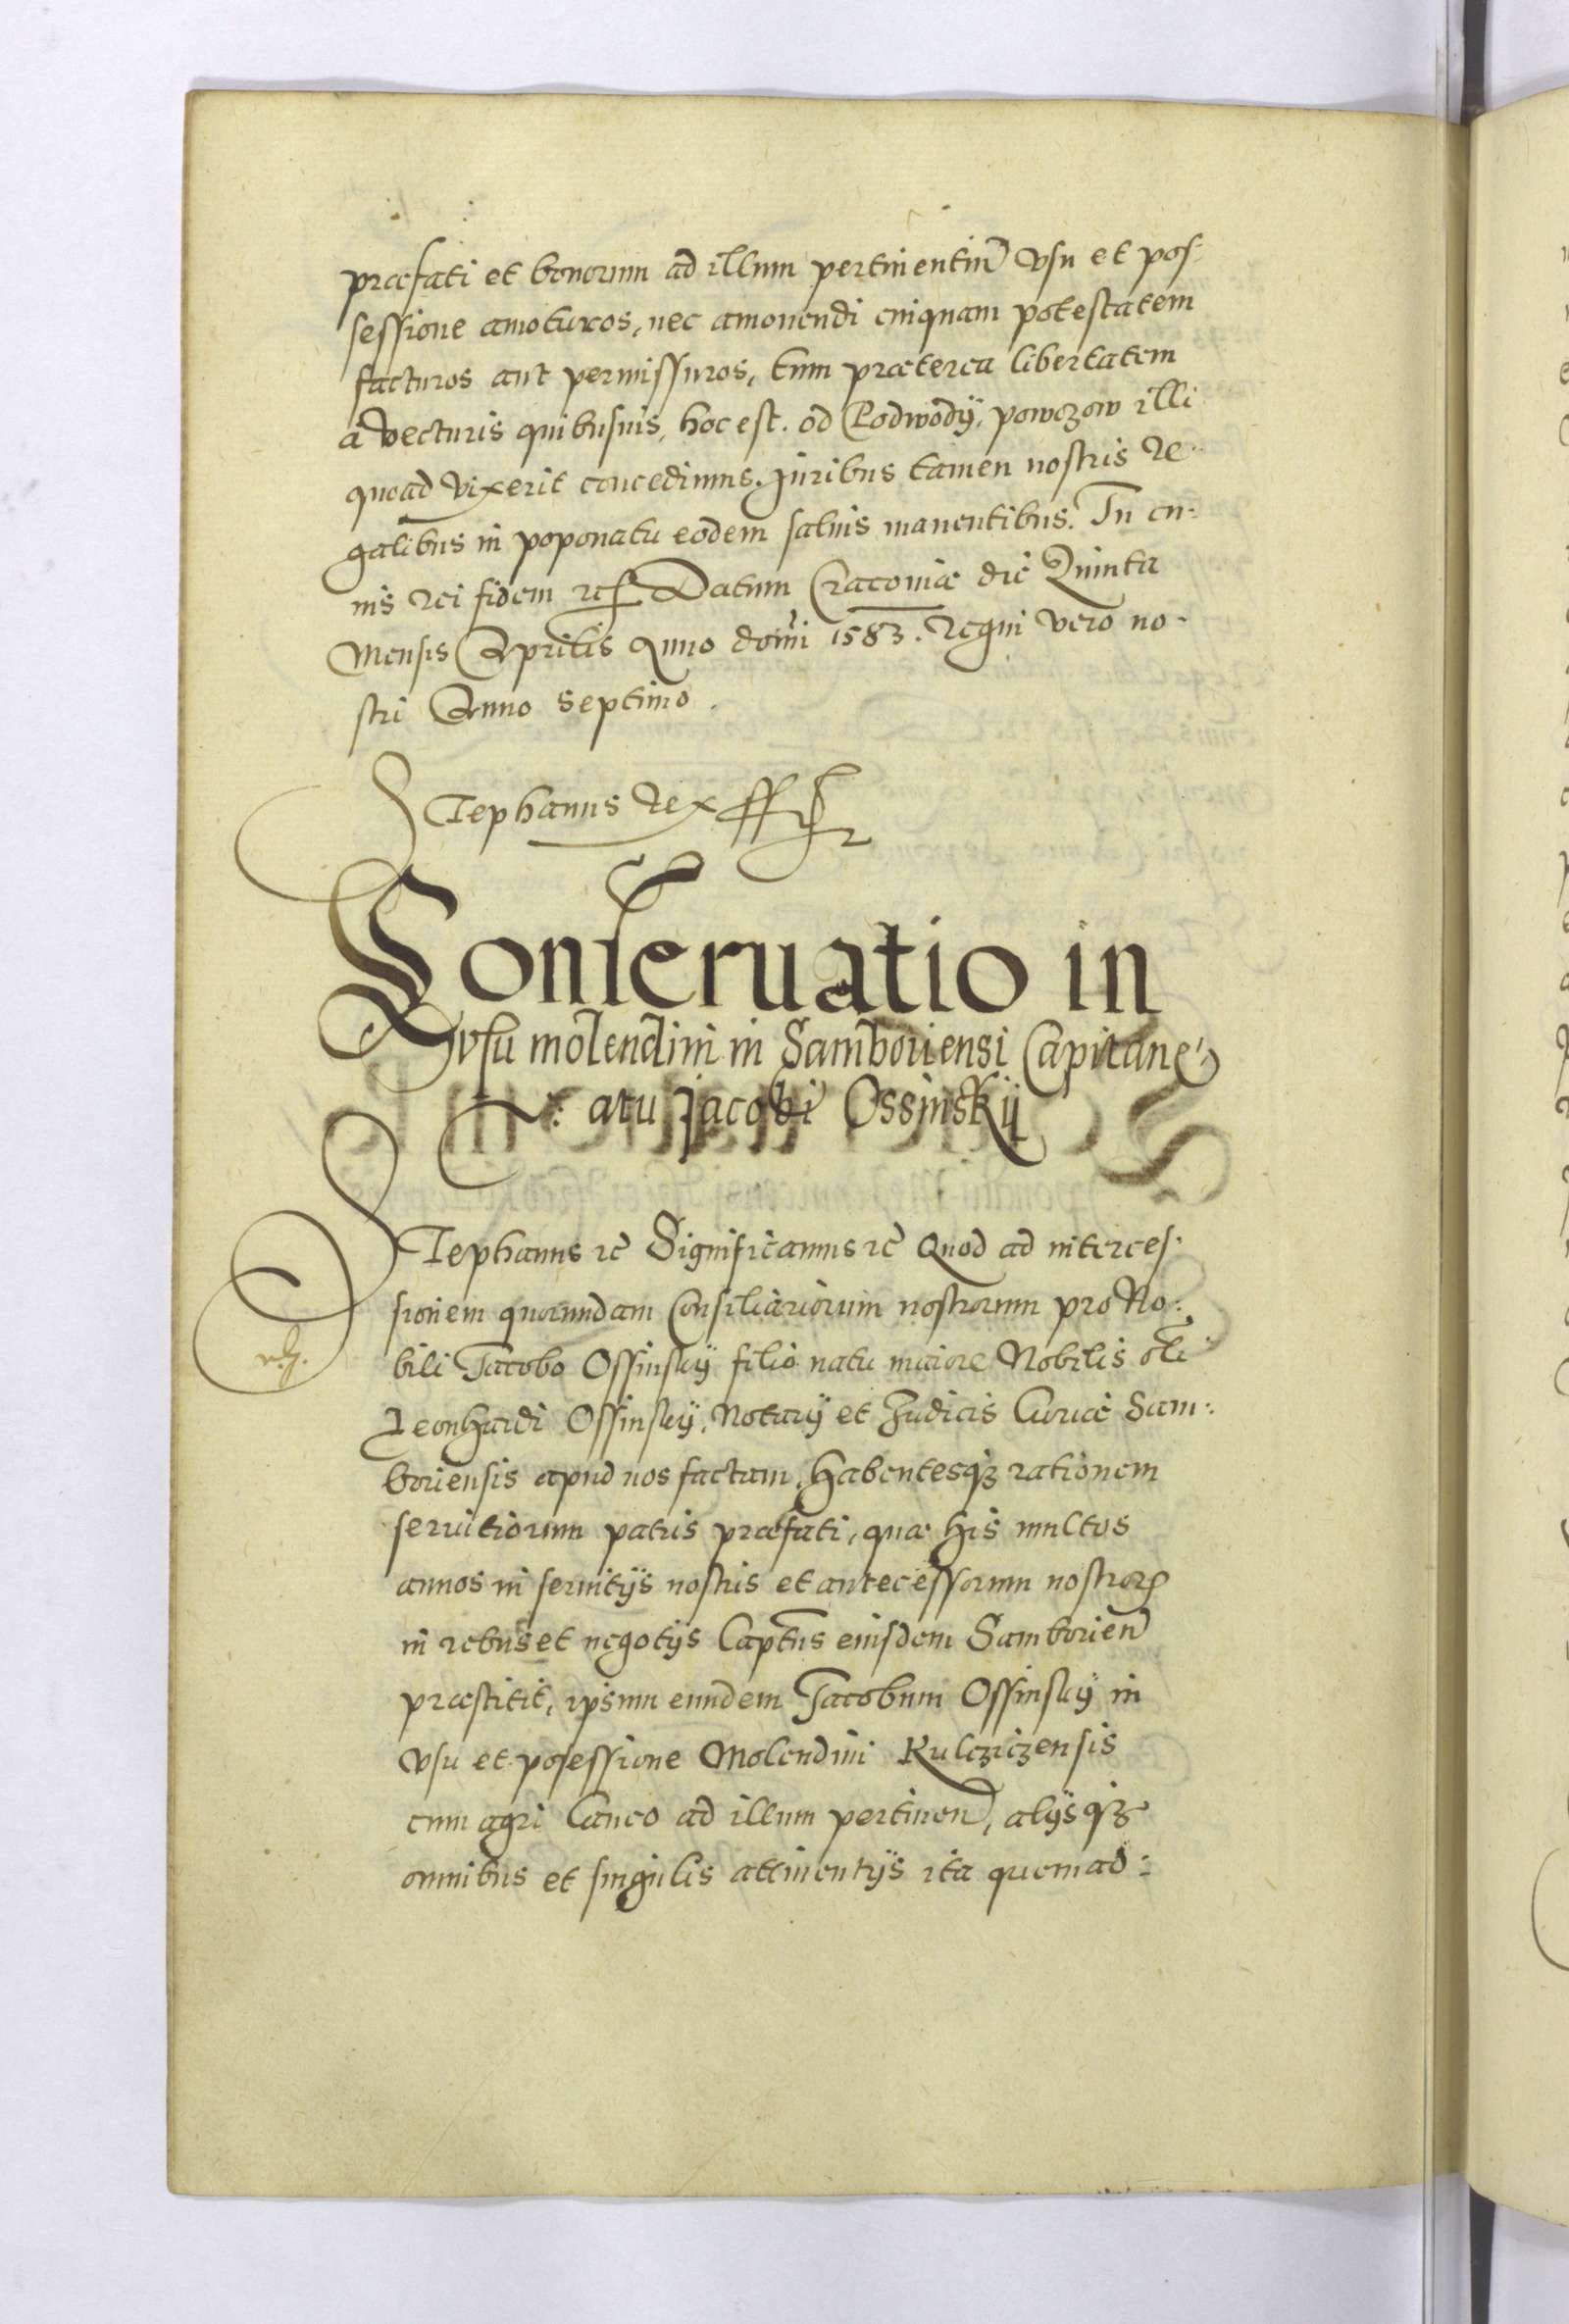 præfati et bonorum ad illum pertinentiũ vsu et pos:
sessione amoturos, nec amouendi cuiquam potestatem
facturos aut permissuros, tum præterea libertatem
a vecturis quibusuis, hoc est. od Podwody, powozow illi
quoad vixerit concedimus. Juribus tamen nostris re:
galibus in poponatu eodem saluis manentibus. In cu:
ius rei fidem etc Datum Cracouiæ die Quinta
Mensis Aprilis Anno domĩ 1583. Regni vero no:
stri Anno septimo.
Stephanus Rex
Conseruatio in
vsu molendini in Samboriensi Capitane:
atu Jacobi Ossinskij
Stephanus etc Significamus etc Quod ad interces:
sionem quorundam Consiliariorum nostrorum pro No:
bili Jacobo Ossinskÿ filio natu maiore Nobilis olĩ
Leonhardi Ossinskÿ, Notarÿ et Judicis Curiæ Sam:
boriensis apud nos factam. Habentesqȝ rationem
seruitiorum patris præfati, quæ his multos
annos in seruitÿs nostris et antecessorum nostroꝝ
in rebus et negotÿs Captus eiusdem Samborieñ
præstitit, ipsum eundem Jacobum Ossinskÿ in
vsu et posessione Molendini Kulcziczensis
cum agri laneo ad illum pertineñ, alÿsqȝ
omnibus et singulis attinentÿs ita quemad: